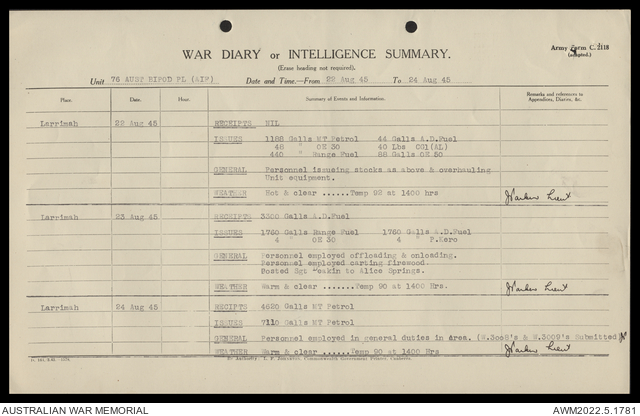 Army Form C. 2118
(adapted.)
WAR DIARY or INTELLIGENCE SUMMARY.
(Erase heading not required).
Unit 76 AUST BIPOD PL (AIF) Date and Time.—From 22 Aug 45 To 24 Aug 45
Place. Date. Hour. Summary of Events and Information. Remarks and references to Appendices, Diaries, &c.
Larrimah 22 Aug 45 RECEIPTS NIL
ISSUES 1188 Galls MT.Petrol 44 Galls A.D.Fuel
48 " OE 30 40 Lbs CG1(AL)
440 " Range Fuel 88 Galls OE 50
GENERAL Personnel issueing stocks as above & overhauling
Unit equipment.
WEATHER Hot & clear ......Temp 92 at 1400 hrs Lieut
Larrimah 23 Aug 45 RECEIPTS 3300 Galls A.D.Fuel
ISSUES 1760 Galls Range Fuel 1760 Galls A.D.Fuel
4 " OE30 4 " P.Kero
GENERAL Personnel employed offloading & onloading.
Personnel employed carting firewood.
Posted Sgt Peakin to Alice Springs.
WEATHER Warm & clear .......Temp 90 at 1400 Hrs. Lieut
Larrimah 24 Aug 45 RECIPTS 4620 Galls MT Petrol
ISSUES 7110 Galls MT Petrol
GENERAL Personnel employed in general duties in Area. (W.3008's & W.3009's Submitted
WEATHER Warm & clear ......Temp 90 at 1400 Hrs Lieut
By Authority: L. F. Johnston, Commonwealth Government Printer, Canberra.
AUSTRALIAN WAR MEMORIAL
AWM2022.5.1781